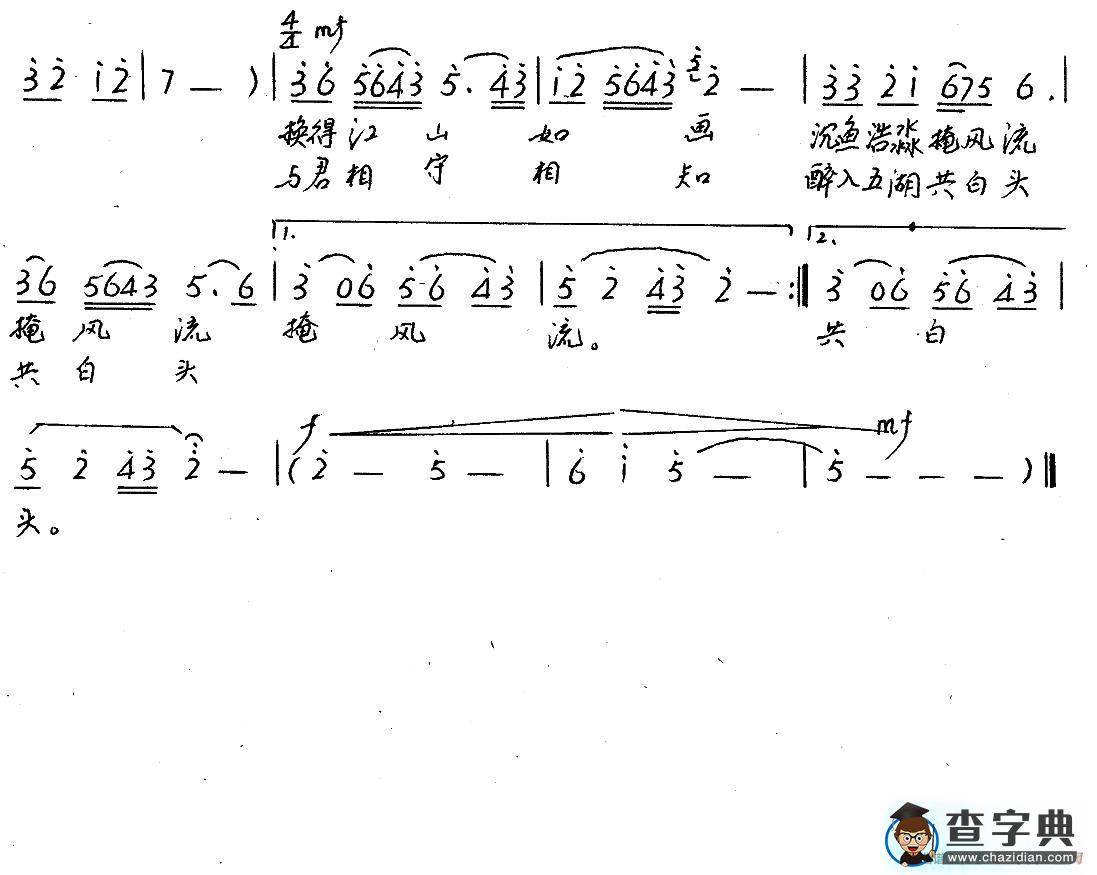 4/4 mf
3 2 1 2 | 7 — ) | 3 6 5 6 4 3 5 . 4 3 | 1 2 5 6 4 3 5 2 — | 3 3 2 1 6 7 5 6 . |
换得江 山 如 画 沉鱼浩淼掩风流
与君相 守 相 知 醉入五湖共白头
1. 2.
3 6 5 6 4 3 5 . 6 | 3 0 6 5 6 4 3 | 5 2 4 3 2 — :‖ 3 0 6 5 6 4 3 |
掩 风 流 掩 风 流。 共 白
共 白 头
f mf
5 2 4 3 2 — | ( 2 — 5 — | 6 1 5 — | 5 — — — ) ‖
头。
查字典
www.chazidian.com